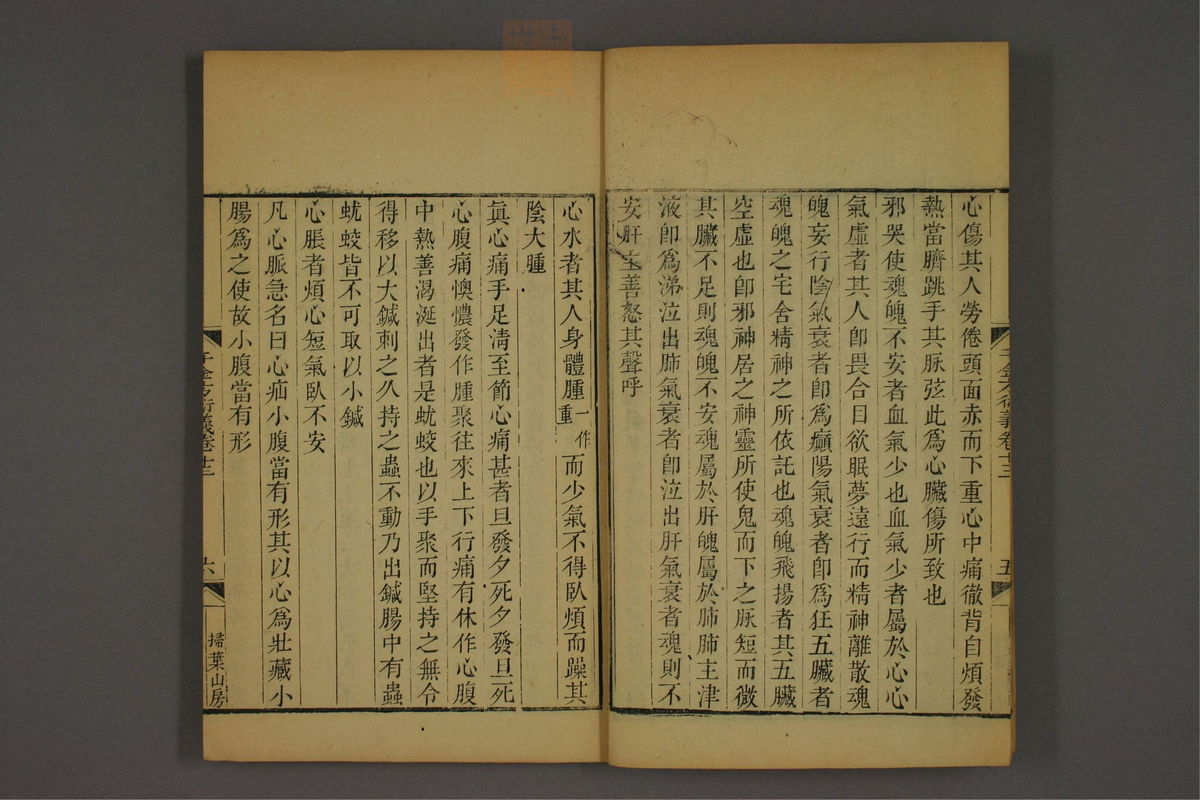 心傷其人勞倦頭面赤而下重心中痛徹背自煩發
熱當臍跳手其脉弦此爲心臟傷所致也
邪哭使魂魄不安者血氣少也血氣少者屬於心心
氣虛者其人卽畏合目欲眠夢遠行而精神離散魂
魄妄行陰氣衰者卽爲癲陽氣衰者卽爲狂五臟者
魂魄之宅舍精神之所依託也魂魄飛揚者其五臟
空虛也卽邪神居之神靈所使鬼而下之脉短而微
其臟不足則魂魄不安魂屬於肝魄屬於肺肺主津
液卽爲涕泣出肺氣衰者卽泣出肝氣衰者魂則不
安肝主善怒其聲呼
千金方衍義卷十三
五
心水者其人身體腫一作重而少氣不得臥煩而躁其
陰大腫
眞心痛手足淸至節心痛甚者旦發夕死夕發旦死
心腹痛懊憹發作腫聚往來上下行痛有休作心腹
中熱善渴涎出者是蚘蛟也以手聚而堅持之無令
得移以大鍼刺之久持之蟲不動乃出鍼腸中有蟲
蚘蛟皆不可取以小鍼
心脹者煩心短氣臥不安
凡心脈急名曰心疝小腹當有形其以心爲壯藏小
腸爲之使故小腹當有形
千金方衍義卷十三
六
掃葉山房